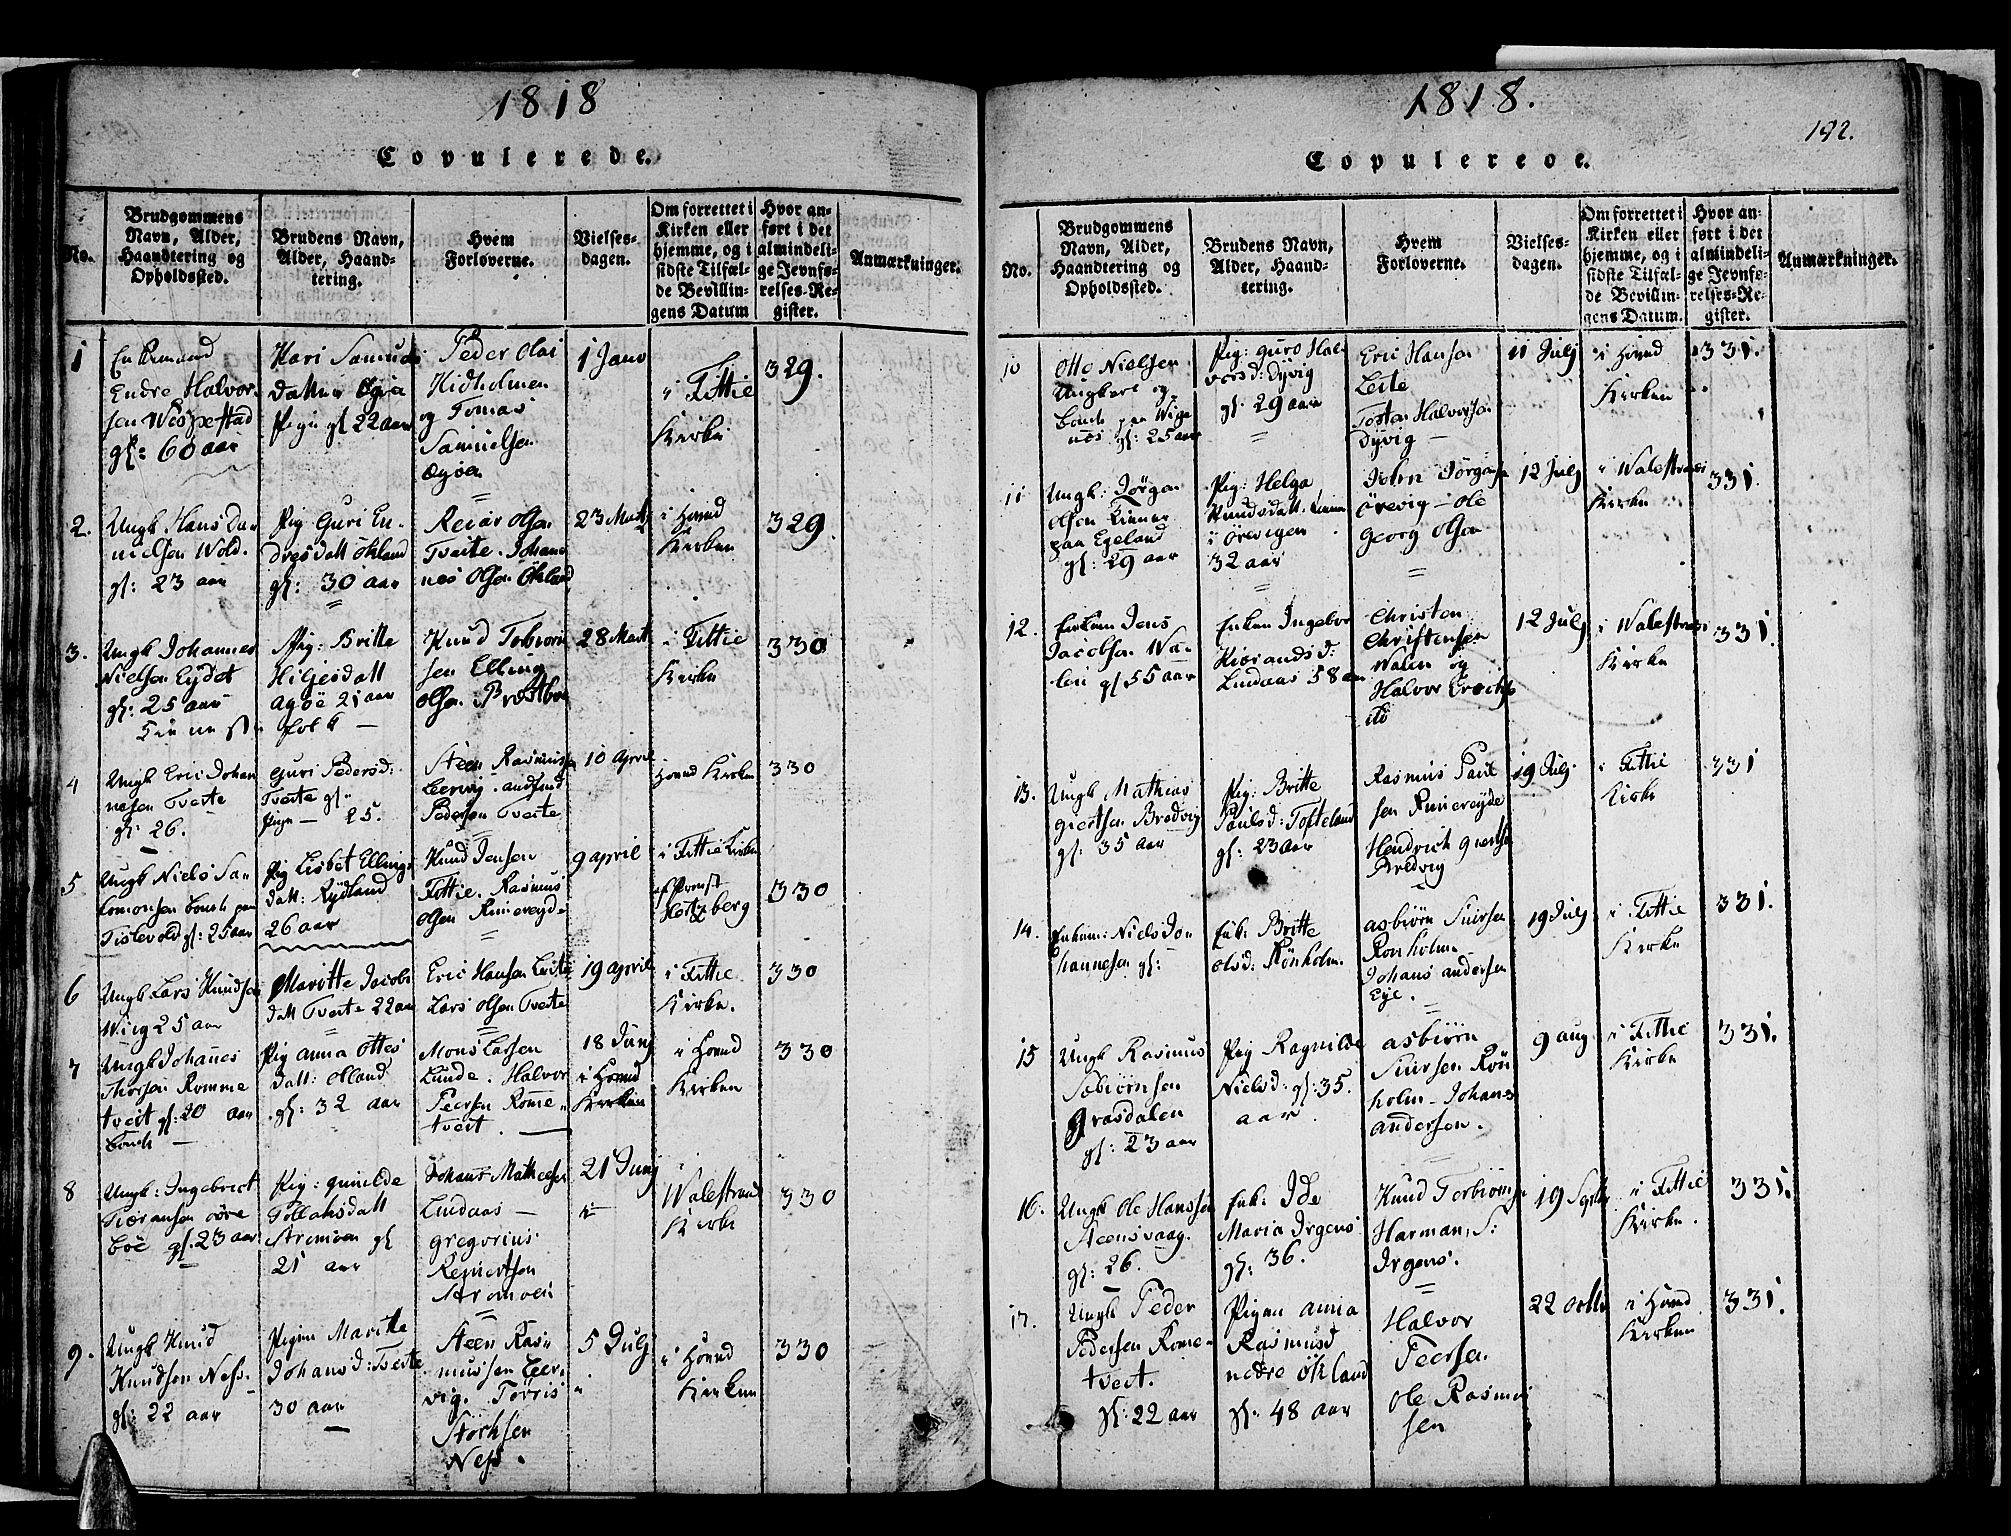 1818
Copulerede.
No.
Brudgommens
Navn, Alder,
Haandtering og
Opholdssted.
Brudens Navn,
Alder, Haand-
tering.
Hvem
Forloverne.
Vielses-
dagen.
Om forrettet i
Kirken eller
hjemme, og i
sidste Tilfæl-
de Bevillin-
gens Datum
Hvor an-
ført i det
almindeli-
ge Jevnfø-
relses-Re-
gister.
Anmærkninger.
1
Enkemand
Endre Halvor-
sen Wespestad
gl: 60 aar
Kari Samuels
datter Øgøa
Pige gl 22 aar
Peder Olai
Hidholmen
og Tomas
Samuelsen
Øgøa
1 Janv
i Fittie
Kirke
329.
2.
Ungk Hans Da-
nielsen Wold.
gl: 23 aar
Pig Guri En-
dresdatt Økland
gl: 30 aar
Reiar Olsen
Tveite. Johan-
nes Olsen Økland
23 Marti
i Hovnd
Kirken
329.
3.
Ungk Johannes
Nielsen Eydet
gl: 25 aar
Pig: Britte
Hiljesdatt
Agøe 21 aar
folk —
Knud Tobiorn
sen Elling
Olsen
28 Marti
i Fittie
Kirke
330
4
Ungk Eric Johan
nesen Tveite
gl: 26.
Guri Pedersd:
Tveite gl:
Pige — 25.
Steen Rasmussen
Leervig. Amfind
Pedersen Tveite
10 April
Hovnd Kirken
330
5
Ungk Niels Sa-
lomonsen bonde paa
Tislevold gl: 25 aar
Pig Lisbet Ellings
datt: Rydland
26 aar
Knud Jensen
Fittie. Rasmus
Olsen Rimereyde
9 april
i Fittie Kirken
af Provst
Hertzberg
330
6
Ungk Lars Knudsen
Wiig 25 aar
Maritte Jacobs
datt Tveite 22 aar
Eric Hansen Leite
Lars Olsen Tveite
19 april
i Fittie
Kirke.
330
7
Ungk Johanes
Thorsen Romme
tveit gl: 20 aar
bonde —
Pig Anna Ottes
datt: Olland
gl: 32 aar
Mons Larsen
Lunde. Halvor
Peersen Rome-
tveit.
18 Junj
i Hovnd
Kirken
i Hovnd
Kirken
330
8
Ungk: Ingebrict
øvre
bøe gl. 23 aar
Pig: gunilde
Tollaksdatt
Strømøen gl
21 aar
Johans Mathesen
Lindaas —
gregorius
Reniertsen
Strømøen
21 Junj
Walestrand
Kirke
330
9.
Ungk Knud
Knudsen Ness
gl: 22 aar
Pigen Maritte
Johansd: Tveite
30 aar
Steen Ras-
mussen Leer-
vig. Tørris
Størksen
Ness.
5 Julj
i Hovnd
Kirken
330
1818.
192.
Copulerede.
No.
Brudgommens
Navn, Alder,
Haandtering og
Opholdssted.
Brudens Navn,
Alder, Haand-
tering.
Hvem
Forloverne.
Vielses-
dagen.
Om forrettet i
Kirken eller
hjemme, og i
sidste Tilfæl-
de Bevillin-
gens Datum.
Hvor an-
ført i det
almindeli-
ge Jevnfø-
relses-Re-
gister.
Anmærkninger.
10
Otto Nielsen
Ungkarl og
bonde paa Wiga
nes gl: 25 aar
Pig: Guro Hal-
vorsd: Dyvig
gl: 29 aar
Eric Hansen
Leite
Tosten Halvorsen
Dyvig —
11 Julj
i Hovnd
Kirken
331.
11
Ungk: Jørgen
Olsen
paa Egeland
gl: 29 aar
Pig: Helga
Knudsdatt
i Ørevigen
32 aar
John Jørgensen
Ørevig — Ole
Georg Olsen
12 Julj
i Walestrand
Kirke
331.
12.
Enkem Jens
Jacobsen Wa-
len gl 55 aar
Enken Ingebor
Kiørandsd:
Lindaas 58 aar
Christen
Christensen
Walen og
Halvor
12 Julj
i Walestrand
Kirke
331.
13.
Ungk Mathias
giertsen Bredvig
gl: 35 aar
Pig: Britte
Paulsd: Tofteland
gl: 23 aar
Rasmus Paul
sen Rimereyde
Hendrich giertsen
Bredvig
19 Julj
i Fittie
Kirke
331
14.
Enkem: Niels Jo-
hannesen gl:
Enk: Britte
Olsd: Rønholm.
asbiørn Siursen
Ronholm.
Johans andersen
Eye.
19 Julj
i Fittie
Kirke
331.
15
Ungk Rasmus
Grøsdalen
gl: 23 aar
Pig Ragnilde
Nielsd: gl: 35.
aar
asbiørn
Siursen Røn
holm. Johans
andersen.
9 aug
i Fittie
Kirke
331.
16.
Ungk Ole Hanssen
Steensvaag.
gl: 26.
Enk: Ide
Maria Irgens
gl: 36.
Knud Torbiørnsen
Harman, S:
Irgens.
19 Septb
i Fittie
Kirke.
331.
17.
Ungk Peder
Pedersen Rome-
tveit.
gl: 22 aar
Pigen anna
Rasmusd
nedre Økland
gl: 48 aar
Halvor
Peersen.
Ole Rasmus
sen
22 octb
i Hovnd
Kirken
331.